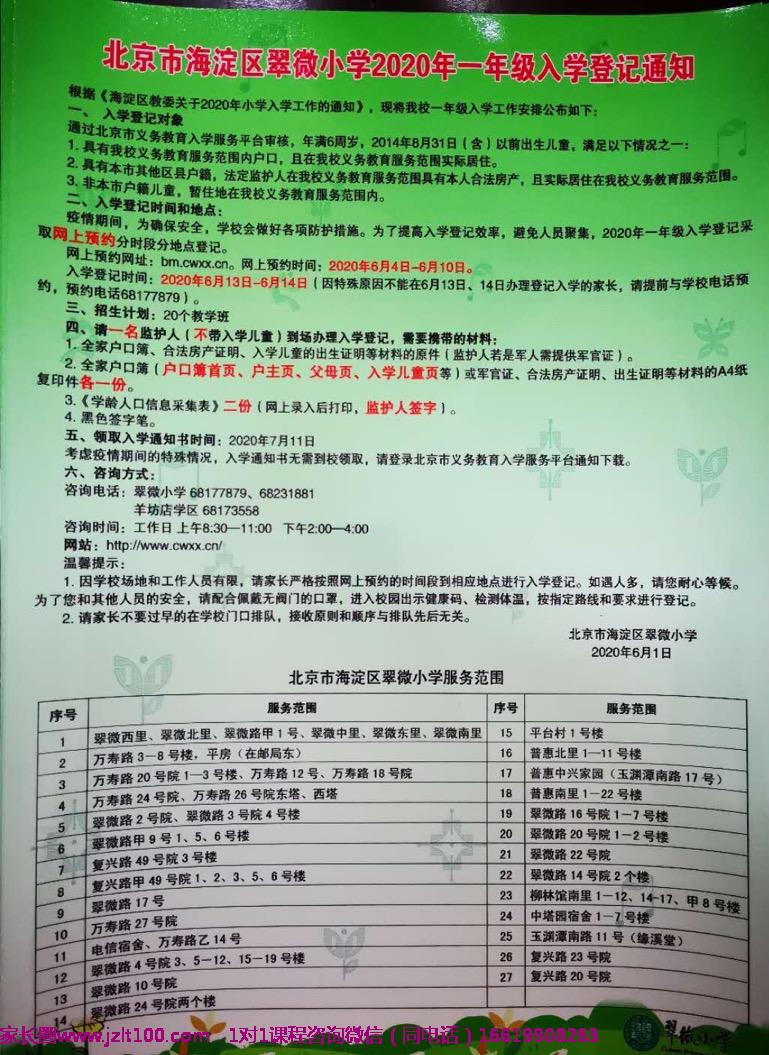 北京市海淀区翠微小学2020年一年级入学登记通知
根据《海淀区教委关于2020年小学入学工作的通知》，现将我校一年级入学工作安排公布如下：
一、 入学登记对象
通过北京市义务教育入学服务平台审核，年满6周岁，2014年8月31日（含）以前出生儿童，满足以下情况之一：
1. 具有我校义务教育服务范围内户口，且在我校义务教育服务范围实际居住。
2. 具有本市其他区县户籍，法定监护人在我校义务教育服务范围具有本人合法房产，且实际居住在我校义务教育服务范围。
3. 非本市户籍儿童，暂住地在我校义务教育服务范围内。
二、入学登记时间和地点：
疫情期间，为确保安全，学校会做好各项防护措施。为了提高入学登记效率，避免人员聚集，2020年一年级入学登记采
取网上预约分时段分地点登记。
网上预约网址：bm.cwxx.cn。网上预约时间：2020年6月4日-6月10日。
入学登记时间：2020年6月13日-6月14日（因特殊原因不能在6月13日、14日办理登记入学的家长，请提前与学校电话预
约，预约电话68177879）。
三、招生计划：20个教学班
四、请一名监护人（不带入学儿童）到场办理入学登记，需要携带的材料：
1. 全家户口簿、合法房产证明、入学儿童的出生证明等材料的原件（监护人若是军人需提供军官证）。
2. 全家户口簿（户口簿首页、户主页、父母页、入学儿童页等）或军官证、合法房产证明、出生证明等材料的A4纸
复印件各一份。
3.《学龄人口信息采集表》二份（网上录入后打印，监护人签字）。
4. 黑色签字笔。
五、领取入学通知书时间：2020年7月11日
考虑疫情期间的特殊情况，入学通知书无需到校领取，请登录北京市义务教育入学服务平台通知下载。
六、咨询方式：
咨询电话：翠微小学 68177879、68231881
羊坊店学区 68173558
咨询时间：工作日 上午8:30—11:00 下午2:00—4:00
网站：http://www.cwxx.cn/
温馨提示：
1. 因学校场地和工作人员有限，请家长严格按照网上预约的时间段到相应地点进行入学登记。如遇人多，请您耐心等候。
为了您和其他人员的安全，请配合佩戴无阀门的口罩，进入校园出示健康码、检测体温，按指定路线和要求进行登记。
2. 请家长不要过早的在学校门口排队，接收原则和顺序与排队先后无关。
北京市海淀区翠微小学
2020年6月1日
北京市海淀区翠微小学服务范围
序号 服务范围 序号 服务范围
1 翠微西里、翠微北里、翠微路甲1号、翠微中里、翠微东里、翠微南里 15 平台村1号楼
2 万寿路3-8号楼，平房（在邮局东） 16 普惠北里1—11号楼
3 万寿路20号院1—3号楼、万寿路12号、万寿路18号院 17 普惠中兴家园（玉渊潭南路17号）
4 万寿路24号院、万寿路26号院东塔、西塔 18 普惠南里1—22号楼
5 翠微路2号院、翠微路3号院4号楼 19 翠微路16号院1-7号楼
6 翠微路甲9号1、5、6号楼 20 翠微路20号院1-2号楼
7 复兴路49号院3号楼 21 翠微路22号院
8 复兴路甲49号院1、2、3、5、6号楼 22 翠微路14号院2个楼
9 翠微路17号 23 柳林馆南里1-12、14-17、甲8号楼
10 万寿路27号院 24 中塔园宿舍1-7号楼
11 电信宿舍、万寿路乙14号 25 玉渊潭南路11号（缘溪堂）
12 翠微路4号院3、5-12、15-19号楼 26 复兴路23号院
13 翠微路10号院 27 复兴路20号院
14 翠微路24号院两个楼
家长帮www.jzlt100.com 1对1课程咨询微信（同电话）16619908263
翠微小学